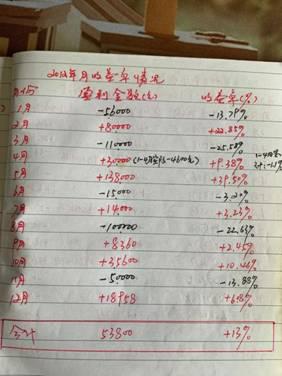 2012年月收益率情况
月份 盈利金额(元) 收益率(%)
1月 -56000 -13.79%
2月 +80000 +22.85%
3月 -110000 -25.58%
4月 +30000 (1-4月 +9.38% 1-4月
5月 +138000 +39.50%
6月 -15000 -3.20%
7月 +14000 +3.23%
8月 -100000 -22.63%
9月 +8360 +2.45%
10月 +35600 +10.46%
11月 -50000 -13.88%
12月 +18958
合计 53800 +13%